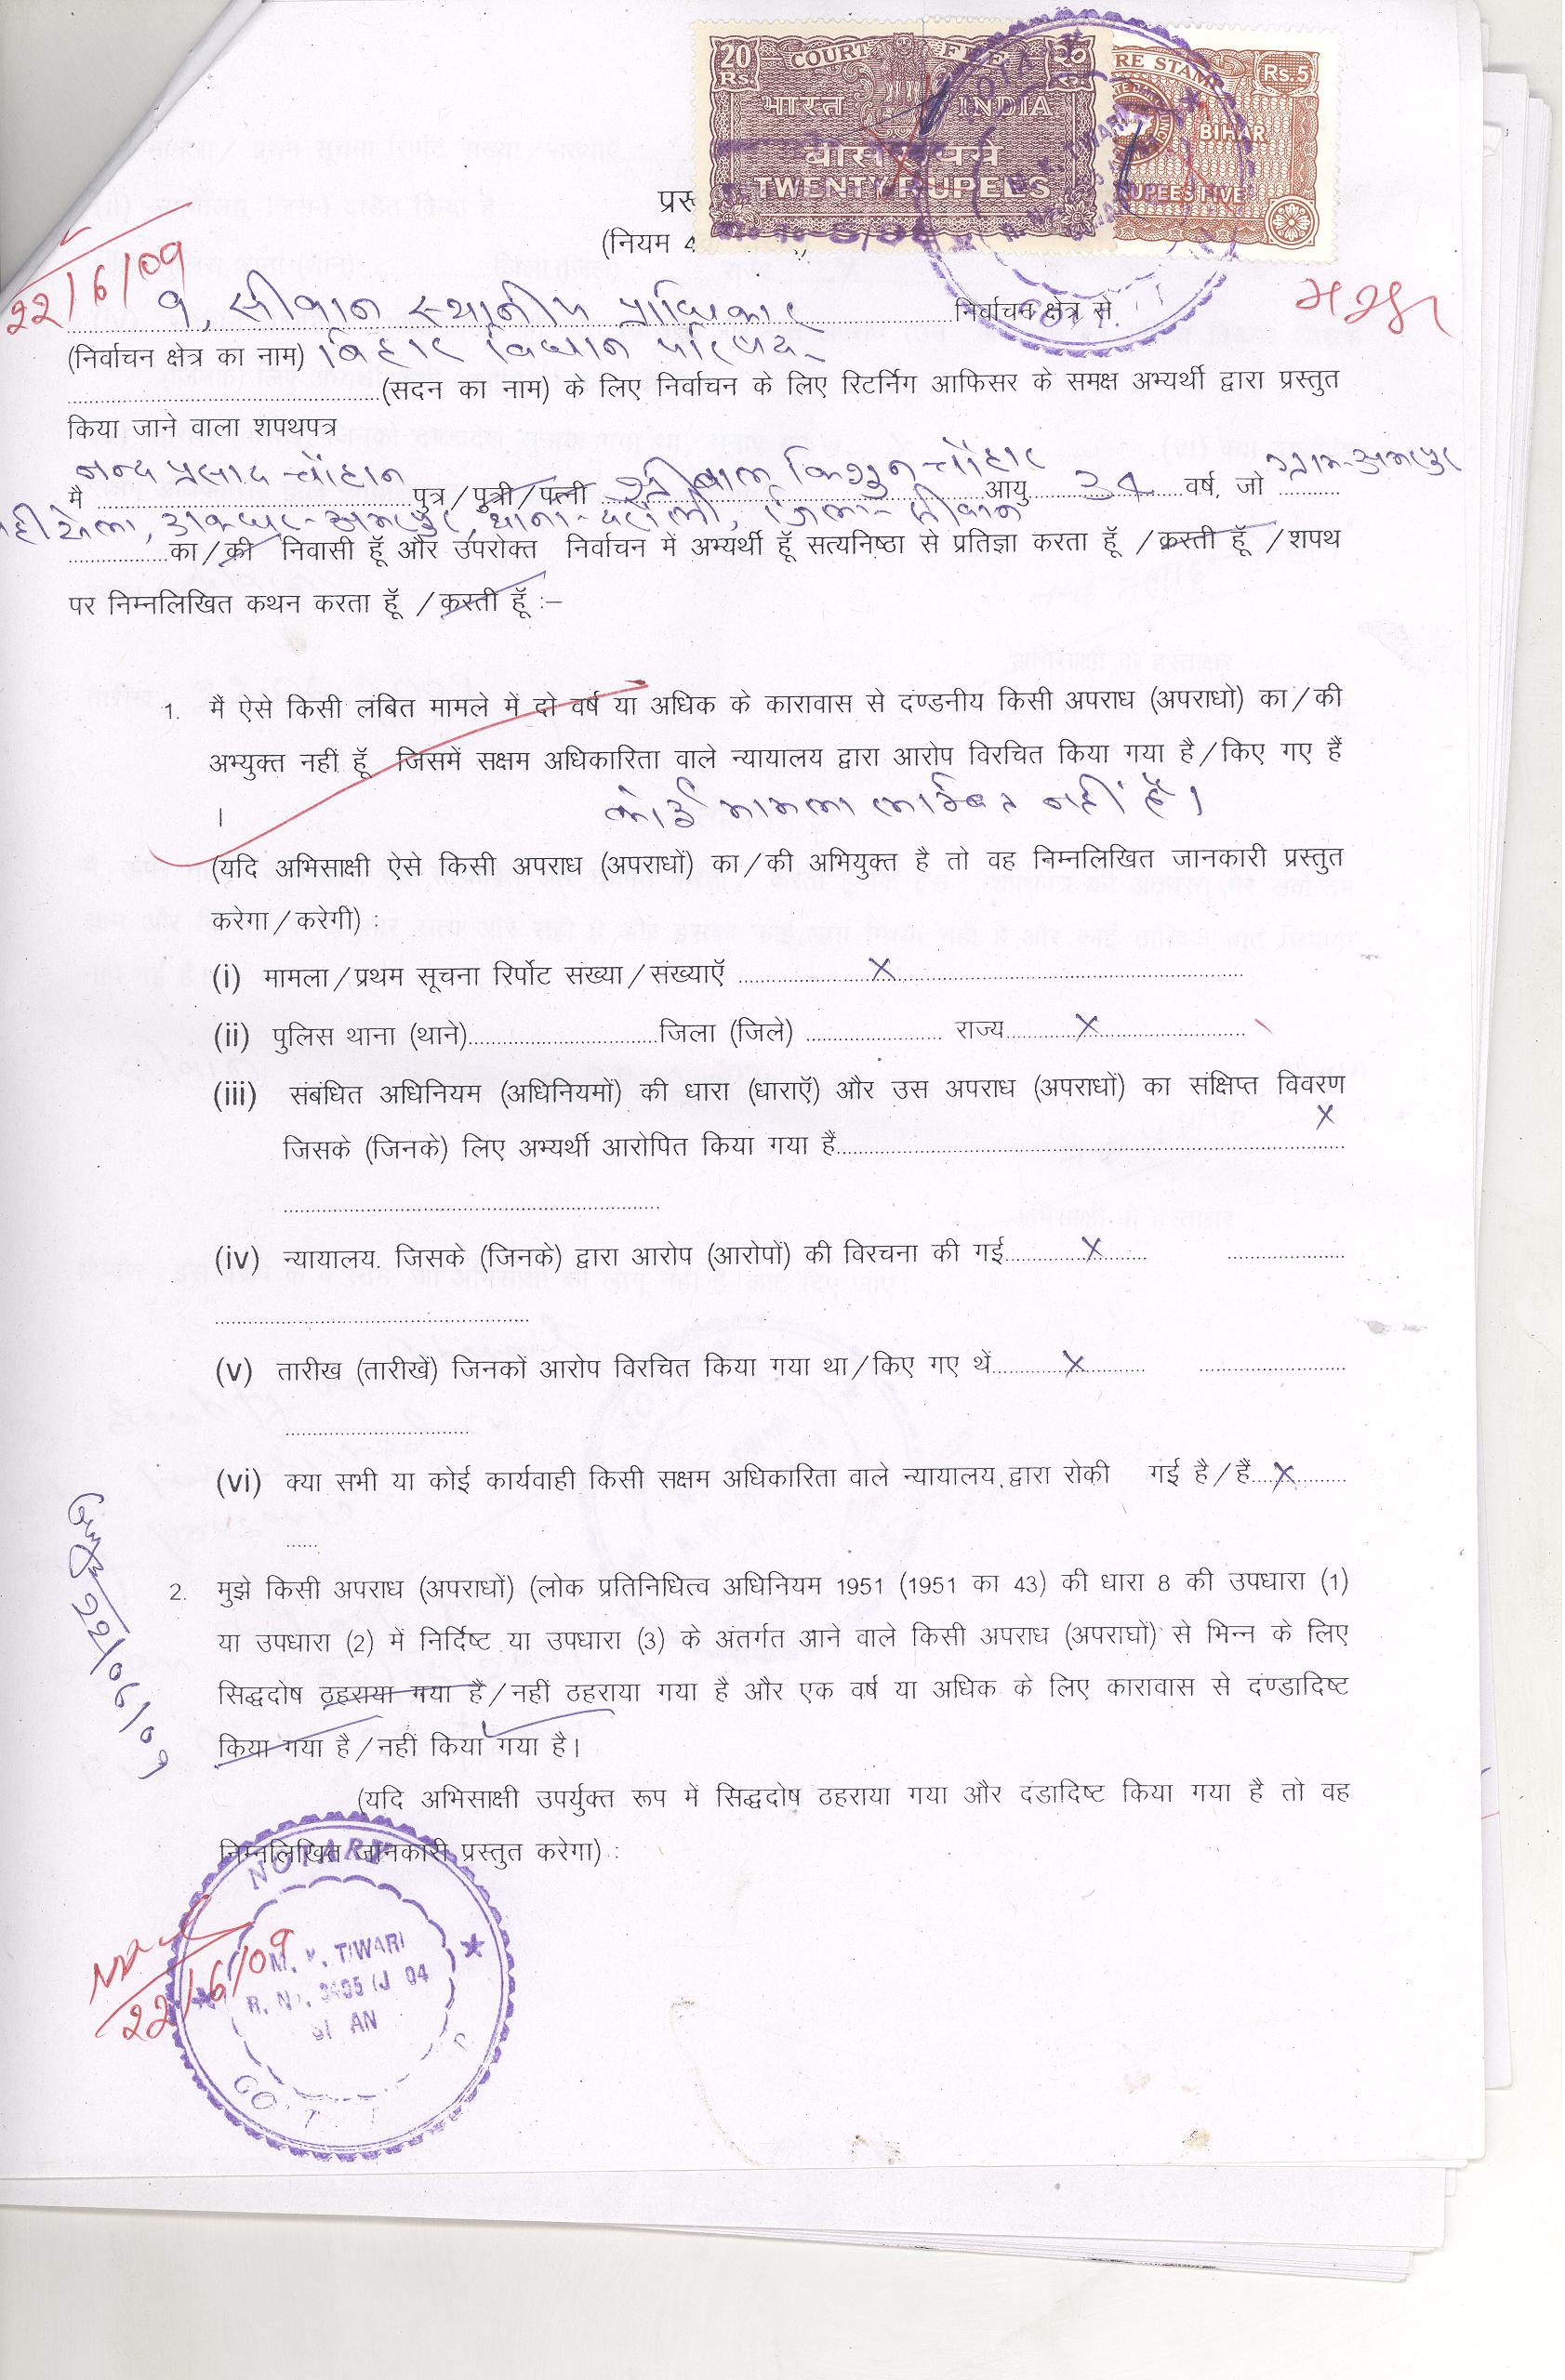 20
Rs.
COURT FEE
२०
रु.
भारत
INDIA
बीस रुपये
TWENTY RUPEES
RE STAMP
Rs.5
BIHAR
RUPEES FIVE
(नियम 4
22/6/09
9, सीवान स्थानीय प्राधिकार निर्वाचन क्षेत्र से
(निर्वाचन क्षेत्र का नाम) बिहार विधान परिषद
(सदन का नाम) के लिए निर्वाचन के लिए रिटर्निग आफिसर के समक्ष अभ्यर्थी द्वारा प्रस्तुत
किया जाने वाला शपथपत्र
मै नन्द प्रसाद चौहान पुत्र/पुत्री/पत्नी श्री बाल किशुन चौहान आयु वर्ष, जो ग्राम-अमरपुर
थाना-दरौली, जिला-सीवान
का/की निवासी हूॅ और उपरोक्त निर्वाचन में अभ्यर्थी हूॅ सत्यनिष्ठा से प्रतिज्ञा करता हूॅ /करती हूॅ /शपथ
पर निम्नलिखित कथन करता हूॅ /करती हूॅ :–
1. मैं ऐसे किसी लंबित मामले में दो वर्ष या अधिक के कारावास से दण्डनीय किसी अपराध (अपराधो) का/की
अभ्युक्त नहीं हूॅ जिसमें सक्षम अधिकारिता वाले न्यायालय द्वारा आरोप विरचित किया गया है/किए गए हैं
। कोई मामला लम्बित नहीं है।
(यदि अभिसाक्षी ऐसे किसी अपराध (अपराधों) का/की अभियुक्त है तो वह निम्नलिखित जानकारी प्रस्तुत
करेगा/करेगी) :
(i) मामला/प्रथम सूचना रिर्पोट संख्या/संख्याऍ X
(ii) पुलिस थाना (थाने) जिला (जिले) राज्य X
(iii) संबंधित अधिनियम (अधिनियमों) की धारा (धाराऍ) और उस अपराध (अपराधों) का संक्षिप्त विवरण
जिसके (जिनके) लिए अभ्यर्थी आरोपित किया गया हैं X
(iv) न्यायालय. जिसके (जिनके) द्वारा आरोप (आरोपों) की विरचना की गई X
(v) तारीख (तारीखें) जिनकों आरोप विरचित किया गया था/किए गए थें X
(vi) क्या सभी या कोई कार्यवाही किसी सक्षम अधिकारिता वाले न्यायालय द्वारा रोकी गई है/हैं X
2. मुझे किसी अपराध (अपराधों) (लोक प्रतिनिधित्व अधिनियम 1951 (1951 का 43) की धारा 8 की उपधारा (1)
या उपधारा (2) में निर्दिष्ट या उपधारा (3) के अंतर्गत आने वाले किसी अपराध (अपराघों) से भिन्न के लिए
सिद्धदोष ठहराया गया है/नहीं ठहराया गया है और एक वर्ष या अधिक के लिए कारावास से दण्डादिष्ट
किया गया है/नहीं किया गया है।
(यदि अभिसाक्षी उपर्युक्त रूप में सिद्धदोष ठहराया गया और दंडादिष्ट किया गया है तो वह
निम्नलिखित जानकारी प्रस्तुत करेगा) :
22/06/09
NOTARY
M. K. TIWARI
22/6/09